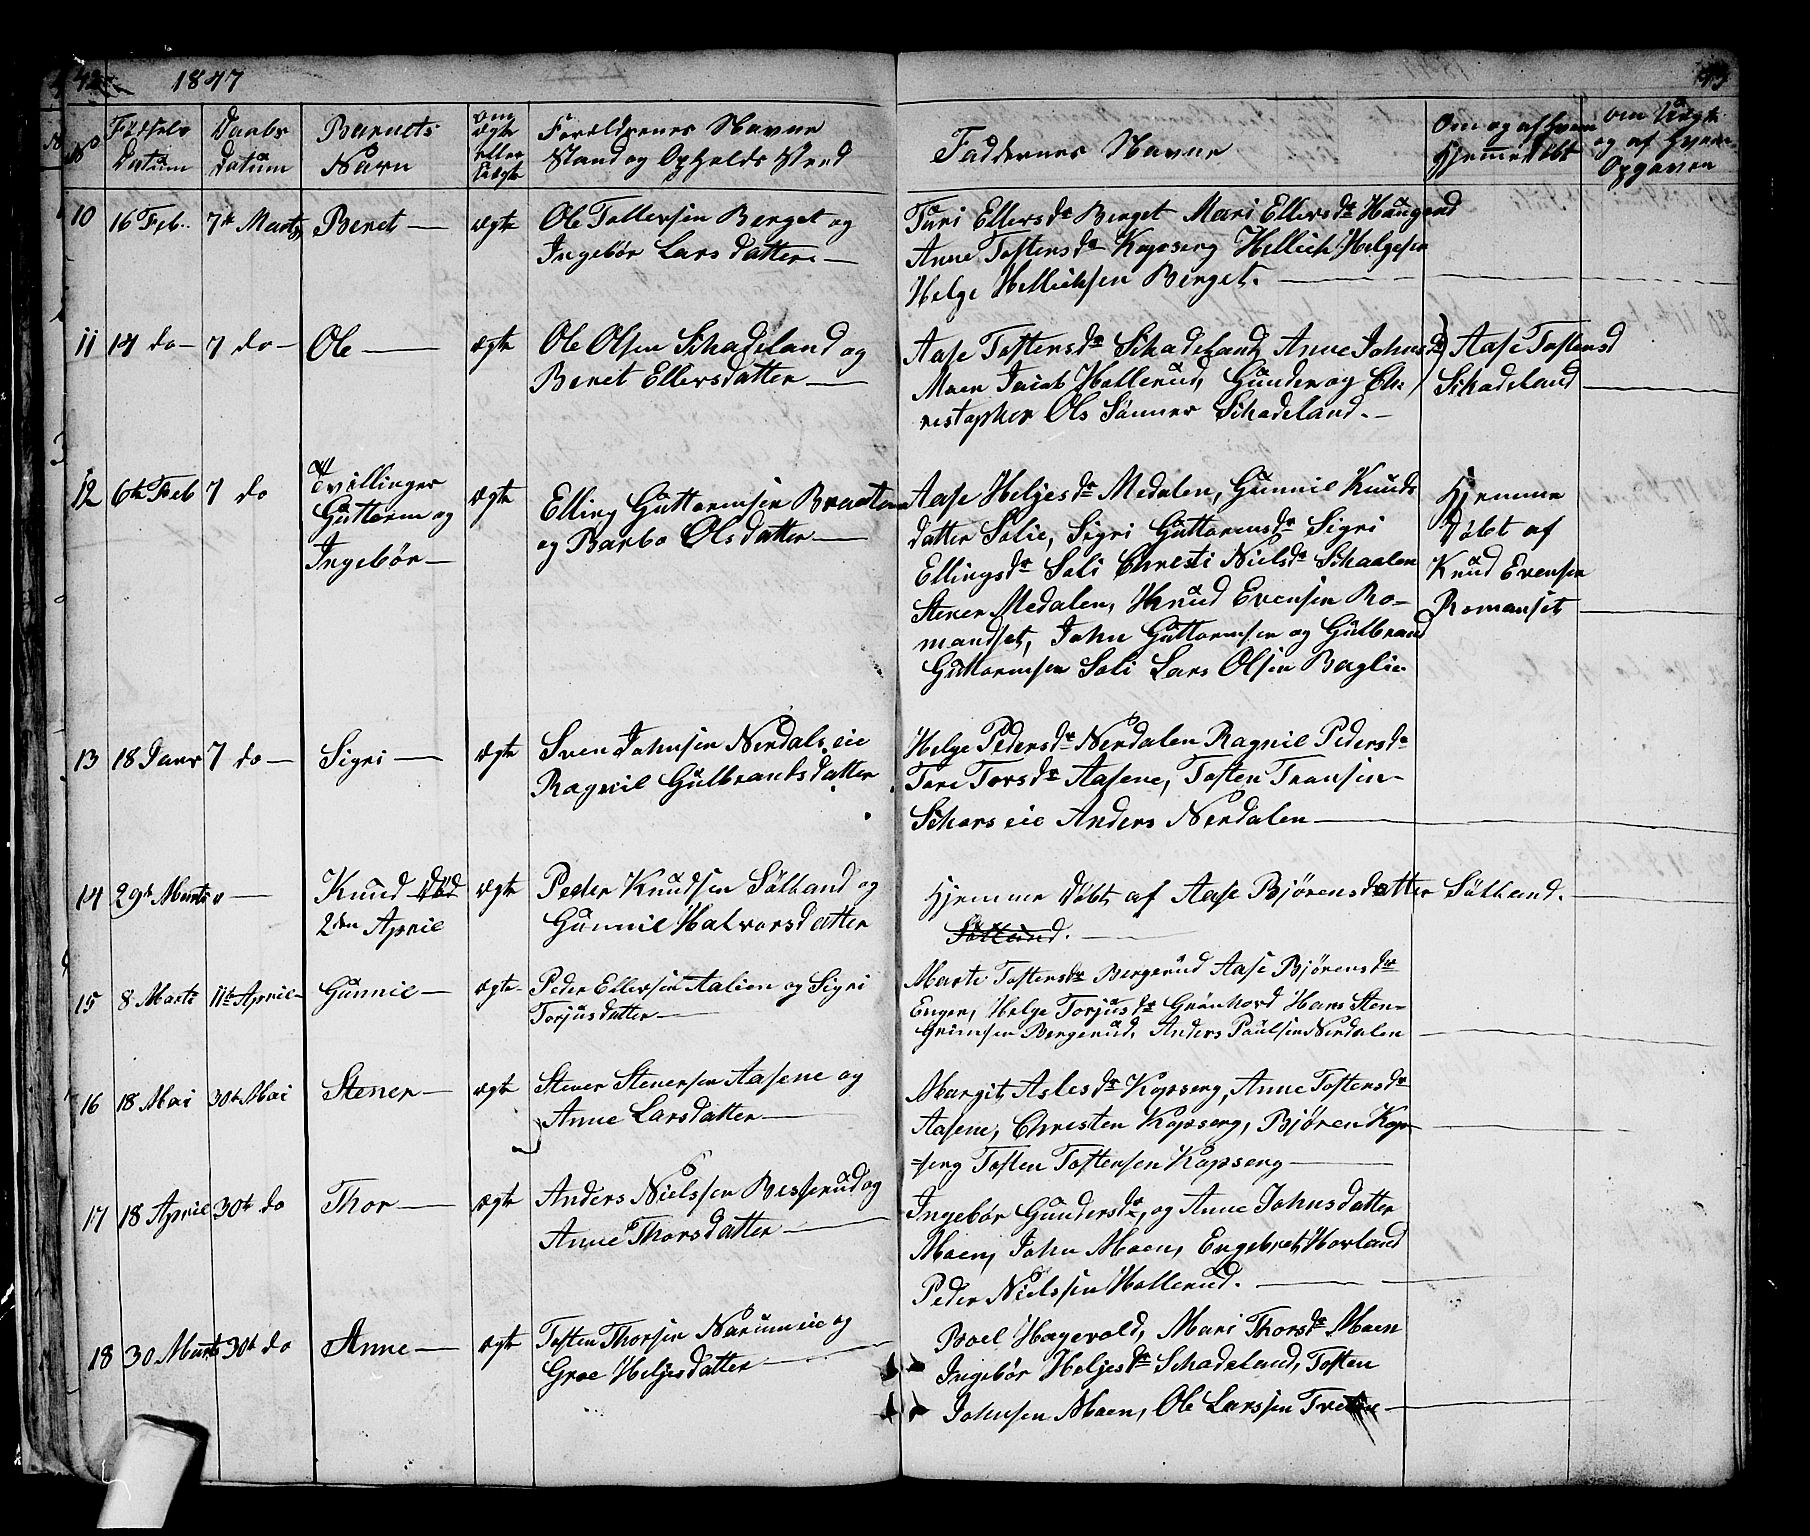 42 1847
43
No Fødsels Daabs Barnets om Forældrenes Navne Faddernes Navne Om og af hvem om Uægte
Datum datum Navn ægte Stand og Opholds Sted Hjemmedøbt og af hvem
eller Opgaven
Uægte
10 16 Feb. 7de Marts Beret — ægte Ole Tollefsen Berget og Turi Ellersdr Berget Mari Ellersdr Haugerd
Ingebør Larsdatter. — Anne Tostensdr Kopseng Hellich Helgesen
Helge Hellichsen Berget. —
11 14 do — 7 do — Ole — ægte Ole Olsen Skadeland og Aase Tostensdr Skadeland, Anne Johnsdr Aase Tostensd
Beret Ellersdatter — Moen Jacob Hollerud, Gunder og Ch- Skadeland —
restopher Ols Sønner Skadeland. —
12 6te Feb 7 do Tvillinger ægte Elling Guttormsen Braaten Aase Heljesdr Medalen, Gunnil Knuds Hjemme
Guttorm og og Barbo Olsdatter — datter Solie, Sigri Guttormsdr Sigri Døbt af
Ingebør — Ellingsdr Soli Christi Nielsdr Skaalen Knud Evensen
Stener Medalen, Knud Evensen Ro- Romanset —
mandset, John Guttormsen og Gulbrand
Guttormsen Soli Lars Olsen Baglie
13 18 Janr 7 do — Sigri — ægte Sven Johnsen Nerdals eie Helge Pedersdr Nerdalen Ragnil Pedersdr
Ragnil Gulbrandsdatter Tore Torsdr Aasene, Tosten Transen
Skors eie Anders Nerdalen —
14 29de Marts — Knud død ægte Peder Knudsen Sølland og Hjemme Døbt af Aase Bjørensdatter Sølland. —
2den April Gunnil Halvorsdatter Sølland. —
15 8 Marts 11te April — Gunnil — ægte Peder Ellersen Aalien og Sigri Marte Tostensdr Bergerud Aase Bjørensdr
Torjusdatter — Enger, Helge Torjusdr Grønhovd Hans Sten-
Grimsen Bergerud, Anders Paulsen Nerdalen
16 18 Mai 30te Mai Stener — ægte Stener Stenersen Aasene og Margit Aslesdr Kopseng, Anne Tostensdr
Anne Larsdatter — Aasene, Christen Kopseng, Bjøren Kop-
-seng Tosten Tostensen Kopseng —
17 18 April 30te do Thor — ægte Anders Nielssen Besserud og Ingebør Gundersdr, og Anne Johnsdatter
Anne Thorsdatter — Moen, John Moen, Engebret Hovland
Peder Nielssen Hollerud. —
18 30 Marts 30te do Anne — ægte Tosten Thorsen Narum eie og Boel Hagevold, Mari Thorsdr Moen
Groe Heljesdatter — Ingebør Heljesdr Skadeland, Tosten
Johnsen Moen, Ole Larssen —